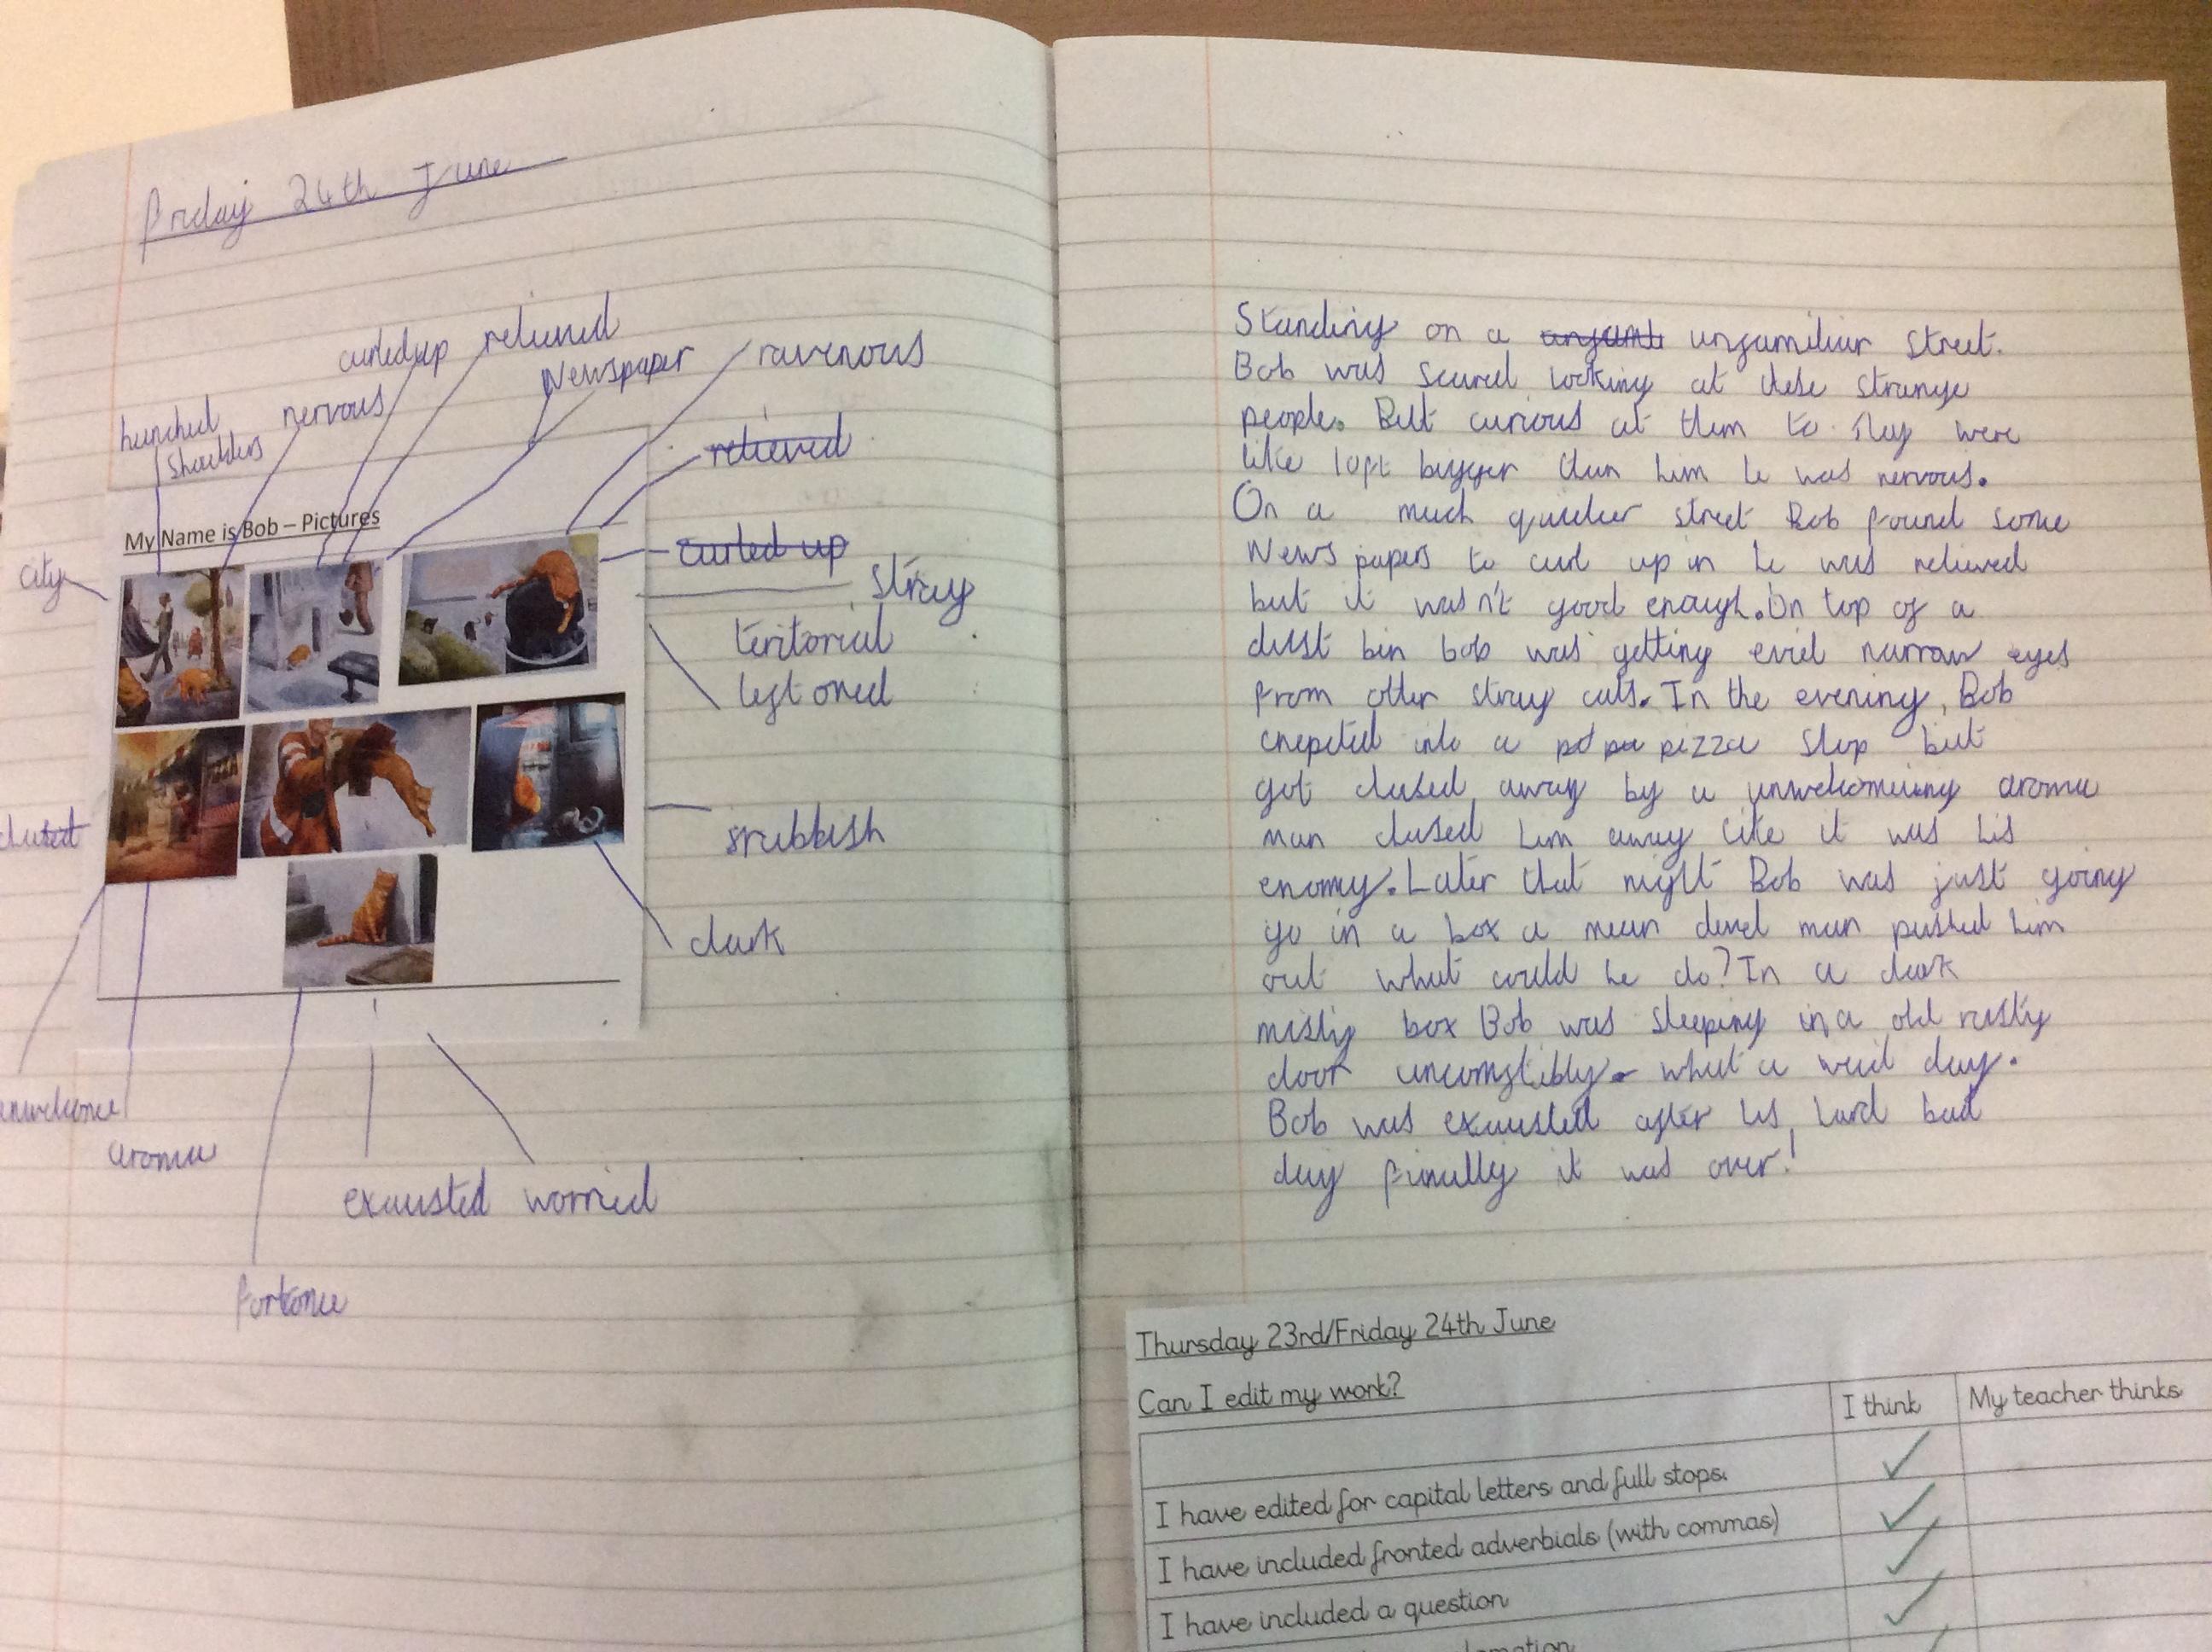 Friday 24th June
curled up relieved
Newspaper
ravenous
hunched
shoulders
nervous
relieved
My Name is Bob – Pictures
curled up
city
stray
teritorial
left oned
chused
srubbish
dark
unwelcome
aroma
exausted worried
fortone
Standing on a unfamiliar street.
Bob was scared looking at these strange
people. But curious at them to. They were
like 10ft bigger than him he was nervous.
On a much quieter street Bob found some
News papers to curl up in he was relieved
but it wasn't good enough. On top of a
dust bin bob was getting eviel narrow eyes
from other stray cats. In the evening, Bob
crepeted into a pizza shop but
got chased away by a unwelcomeing aroma
man chased him away like it was his
enomy. Later that night Bob was just going
go in a box a mean devel man pushed him
out what could he do? In a dark
misty box Bob was sleeping in a old rusty
door uncomftibly what a weid day.
Bob was exausted after his hard bad
day finally it was over!
Thursday 23rd/Friday 24th June
Can I edit my work?
I think
My teacher thinks
I have edited for capital letters and full stops.
I have included fronted adverbials (with commas)
I have included a question